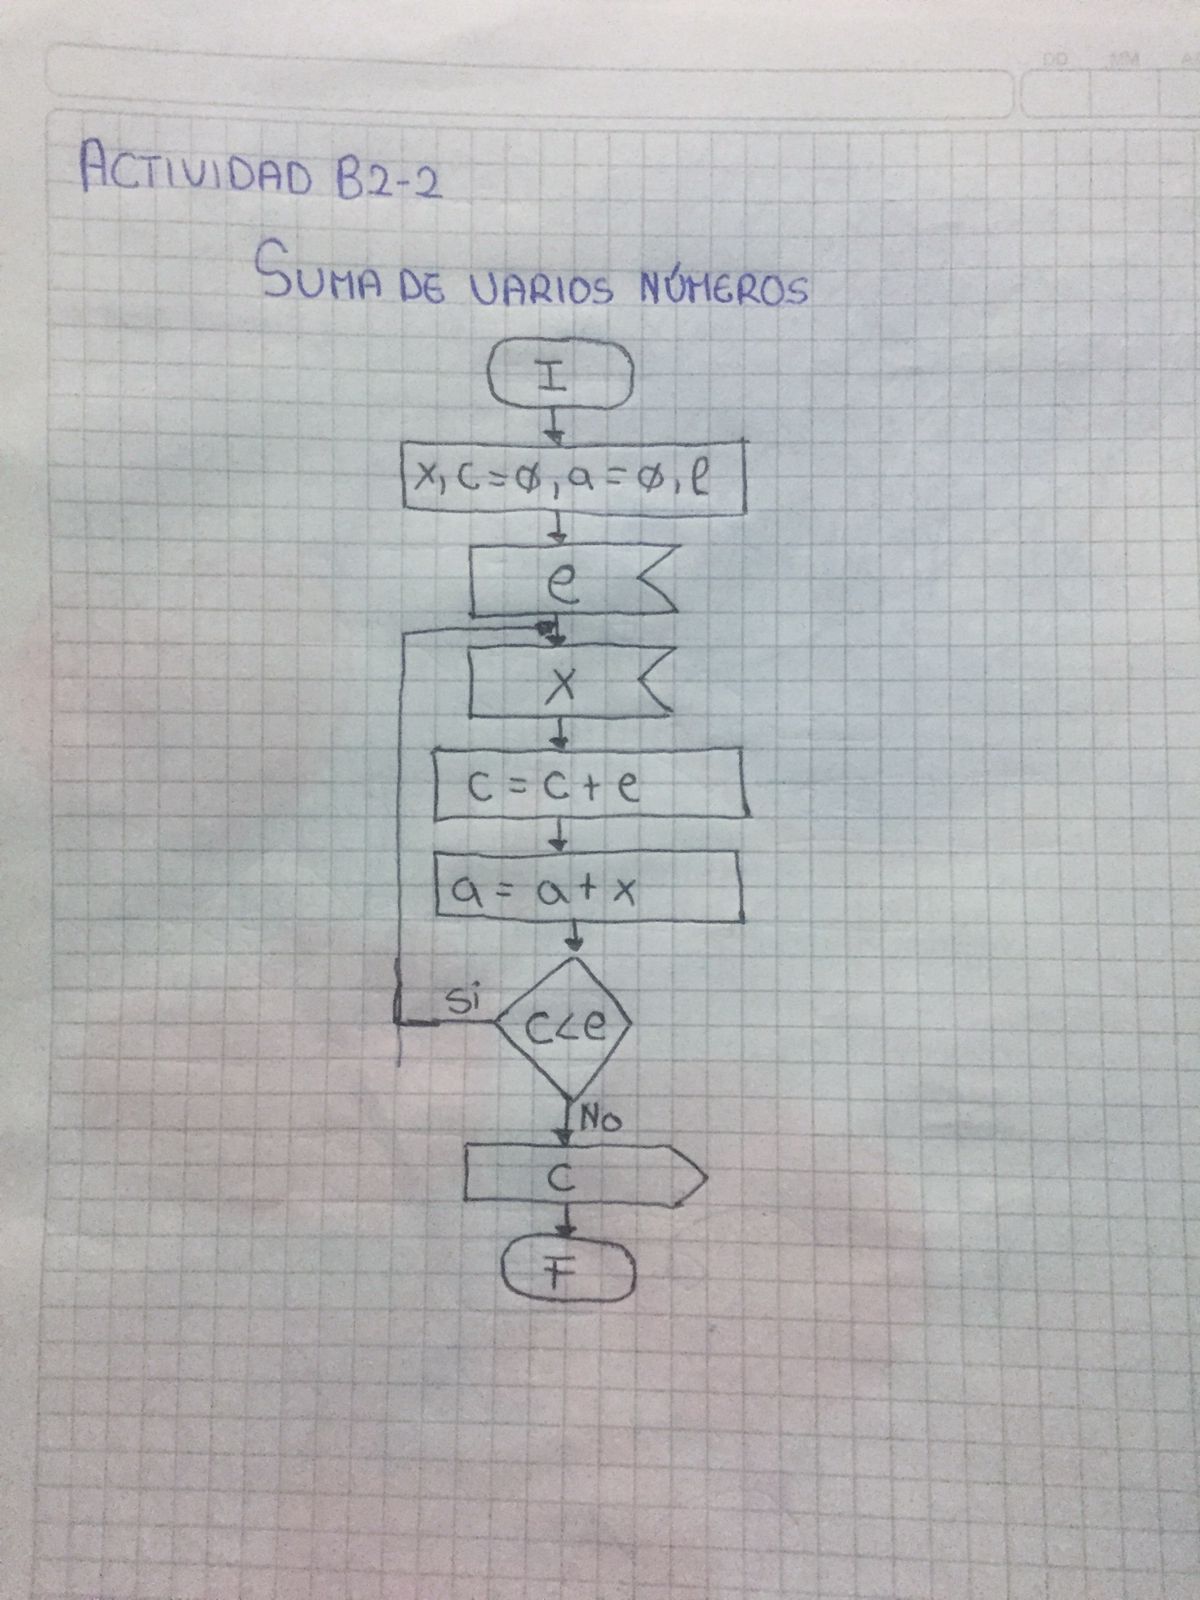 DD MM
ACTIVIDAD B2-2
SUMA DE VARIOS NÚMEROS
I
x, c=ø, a=ø, e
e
x
c = c + e
a = a + x
Si
c<e
No
c
F